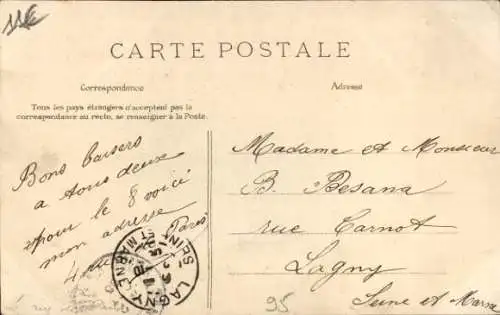 CARTE POSTALE
Correspondance
Adresse
Tous les pays étrangers n'acceptent pas la
correspondance au recto, se renseigner à la Poste.
Bons baisers
a tous deux
pour le 8 voici
mon adresse
Paris
Madame et Monsieur
B. Besana
rue Carnot
Lagny
Seine et Marne
LAGNY
SEINE ET MARNE
95